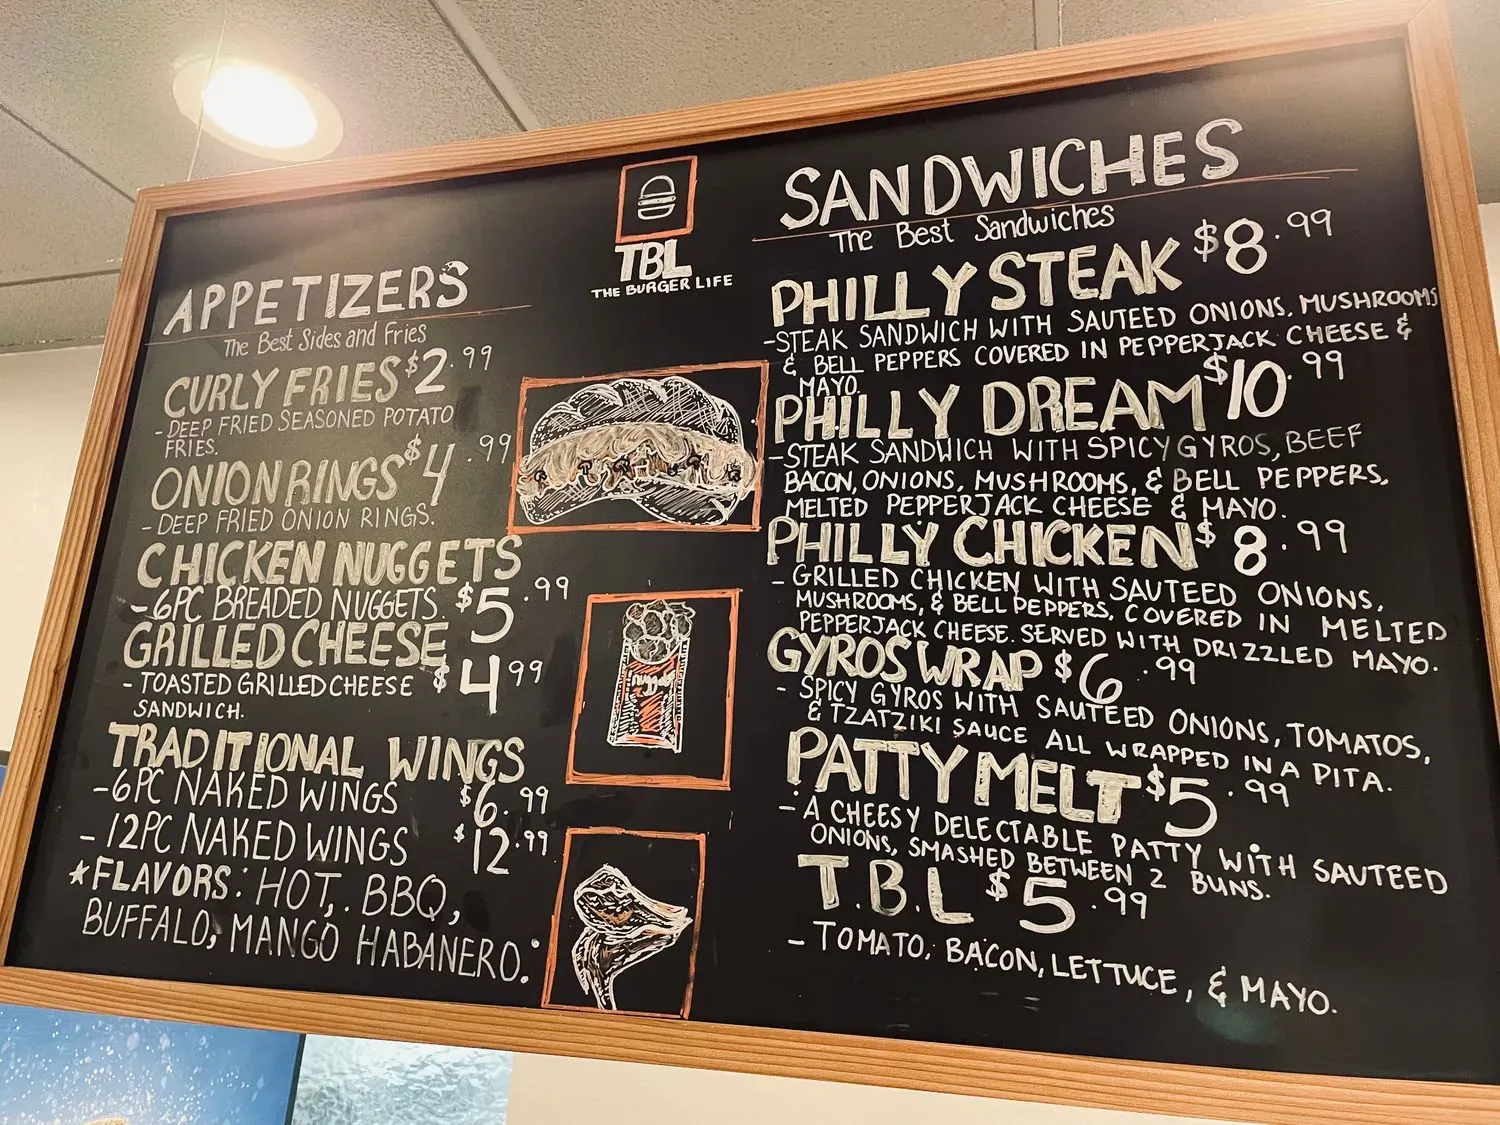 TBL
THE BURGER LIFE
APPETIZERS
The Best Sides and Fries
CURLY FRIES $2.99
- DEEP FRIED SEASONED POTATO
FRIES.
ONION RINGS $4.99
- DEEP FRIED ONION RINGS.
CHICKEN NUGGETS
- 6PC BREADED NUGGETS $5.99
GRILLED CHEESE
- TOASTED GRILLED CHEESE $4.99
SANDWICH.
TRADITIONAL WINGS
- 6PC NAKED WINGS $6.99
- 12PC NAKED WINGS $12.99
*FLAVORS: HOT, BBQ,
BUFFALO, MANGO HABANERO.*
SANDWICHES
The Best Sandwiches
PHILLY STEAK $8.99
- STEAK SANDWICH WITH SAUTEED ONIONS, MUSHROOMS
& BELL PEPPERS COVERED IN PEPPERJACK CHEESE &
MAYO.
PHILLY DREAM $10.99
- STEAK SANDWICH WITH SPICY GYROS, BEEF
BACON, ONIONS, MUSHROOMS, & BELL PEPPERS,
MELTED PEPPERJACK CHEESE & MAYO.
PHILLY CHICKEN $8.99
- GRILLED CHICKEN WITH SAUTEED ONIONS,
MUSHROOMS, & BELL PEPPERS, COVERED IN MELTED
PEPPERJACK CHEESE. SERVED WITH DRIZZLED MAYO.
GYROS WRAP $6.99
- SPICY GYROS WITH SAUTEED ONIONS, TOMATOS,
& TZATZIKI SAUCE ALL WRAPPED IN A PITA.
PATTY MELT $5.99
- A CHEESY DELECTABLE PATTY WITH SAUTEED
ONIONS, SMASHED BETWEEN 2 BUNS.
T.B.L $5.99
- TOMATO, BACON, LETTUCE, & MAYO.